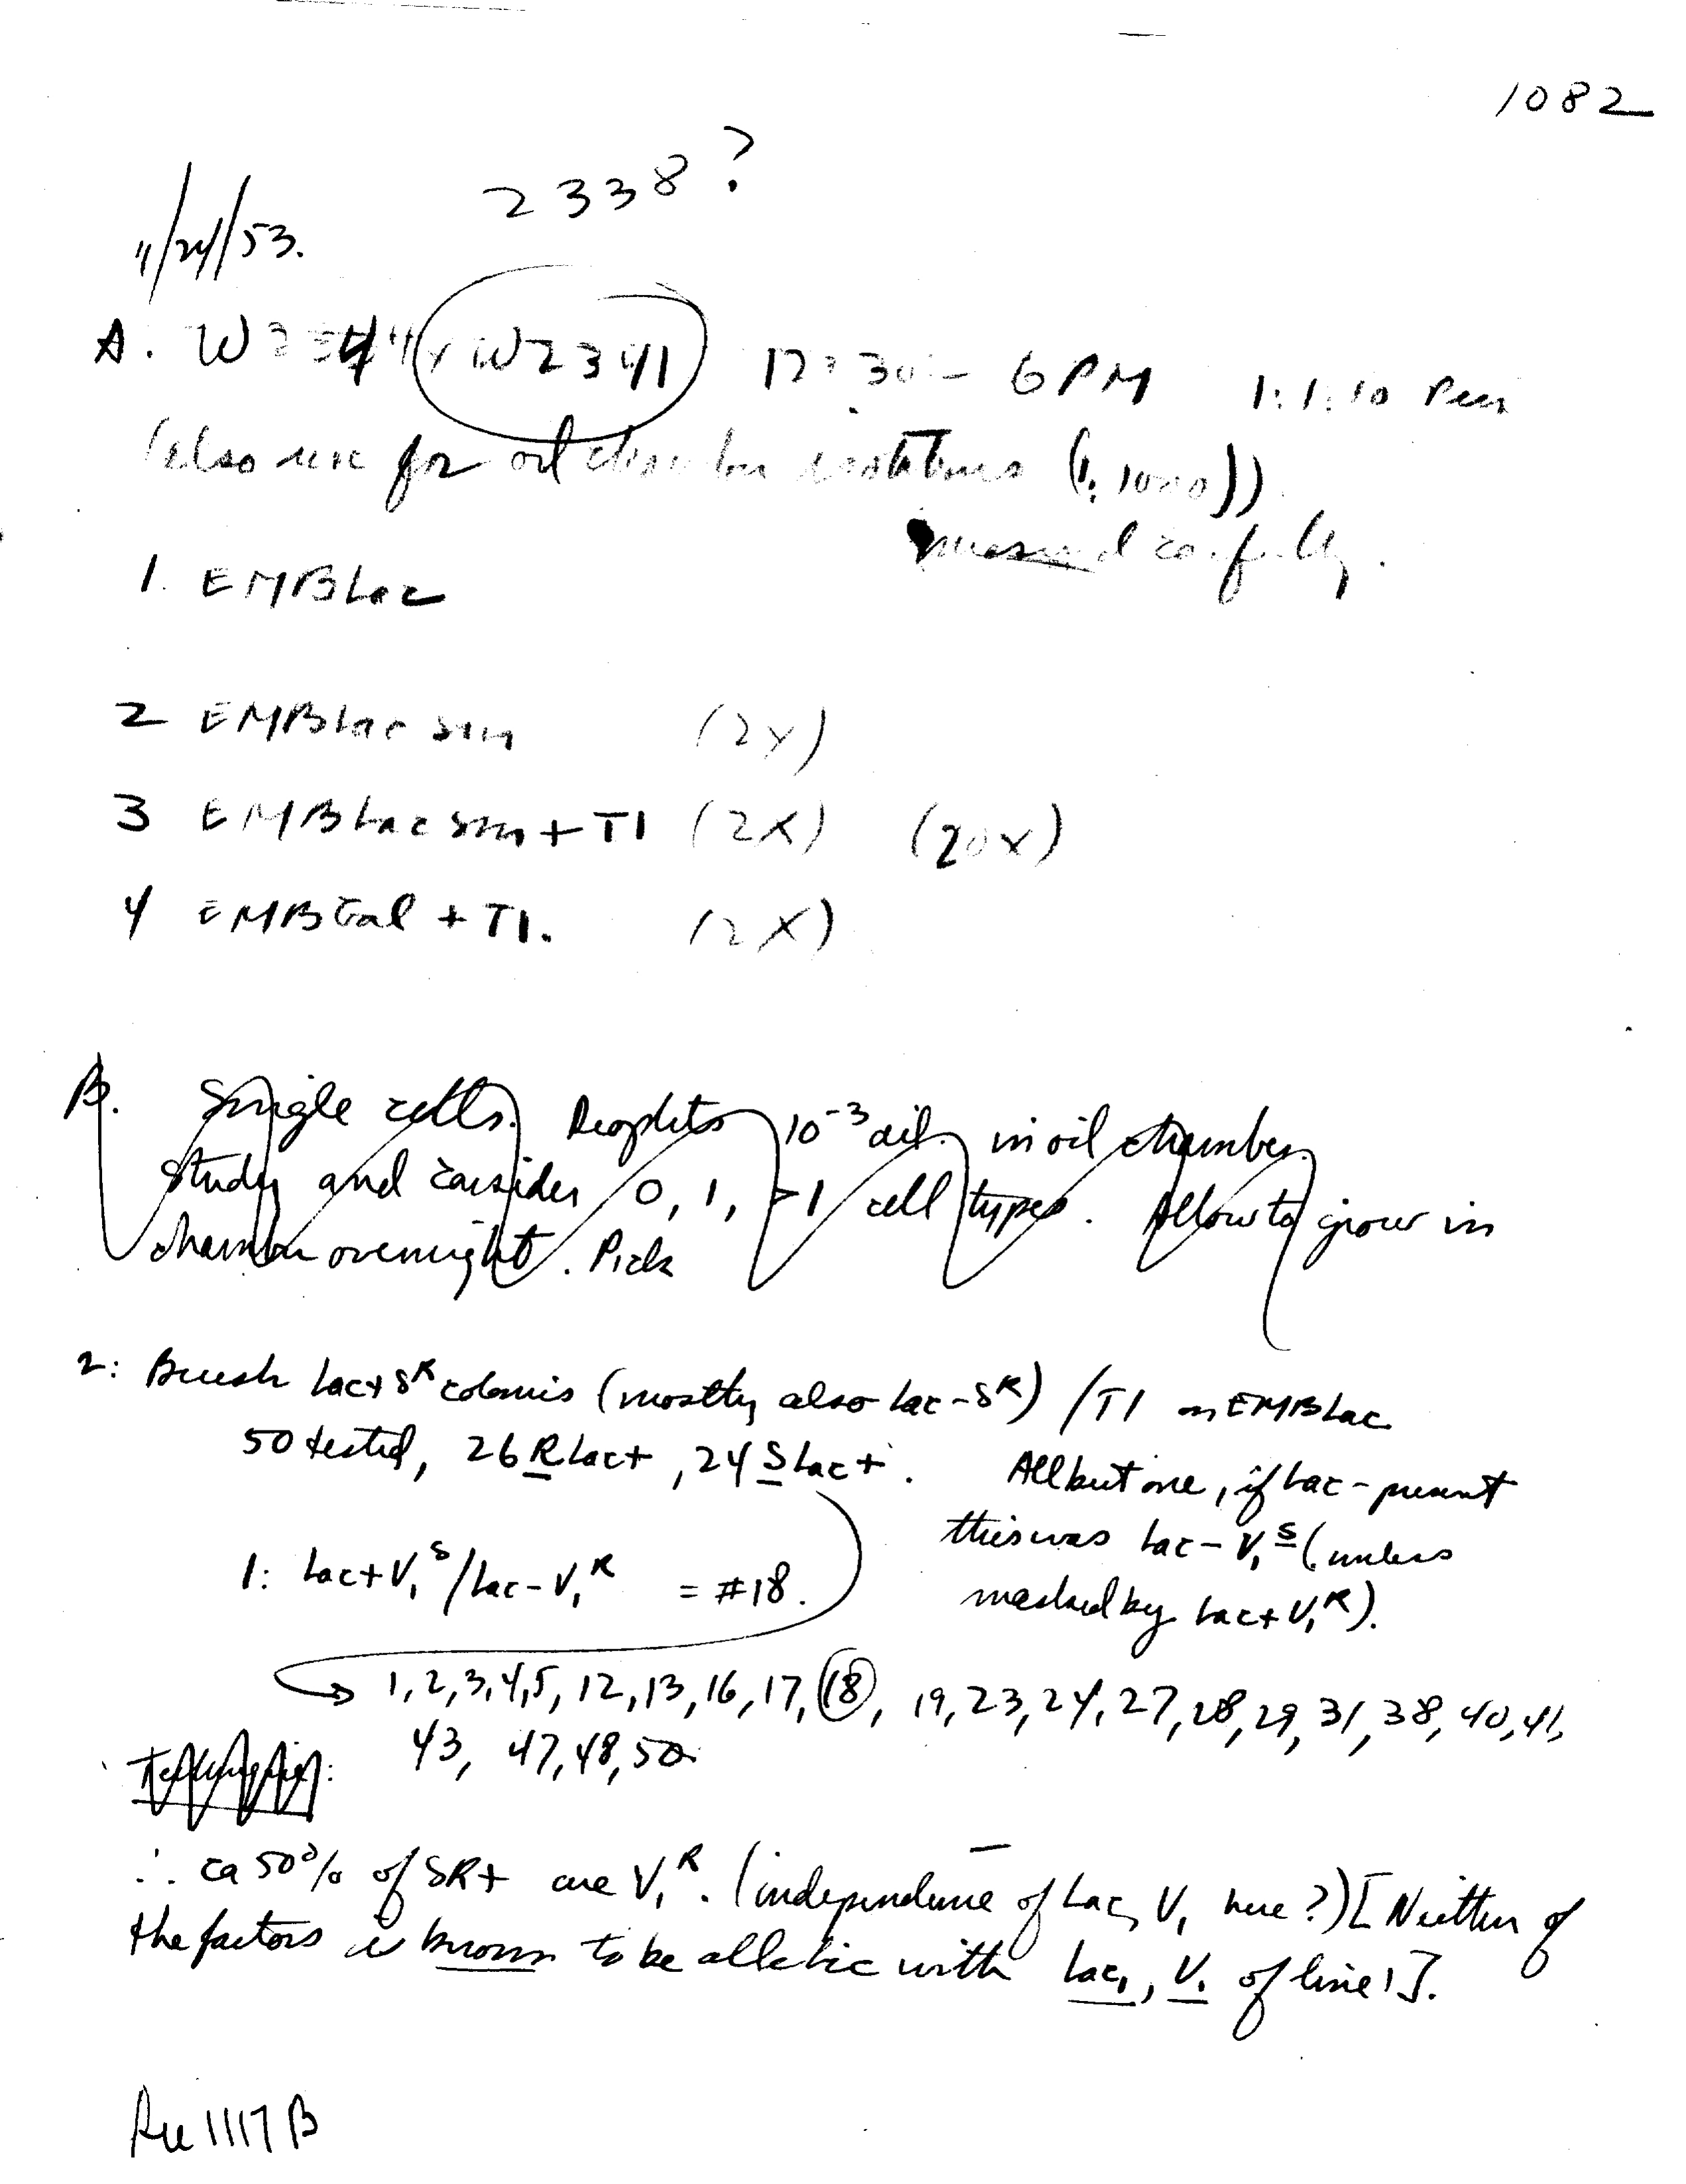 1082
2338?
11/24/53.
A. W2344 x W2341 12:30 - 6PM 1:1:10 Pen
(also use for oil chamber isolations (1:1000))
measured carefully.
1. EMBLac
2 EMBLac Sm (2X)
3 EMB Lac Sm + T1 (2X) (20X)
4 EMB Gal + T1. (2X)
B. Single cells. Droplets 10⁻³ dil. in oil chamber.
Study and consider 0, 1, >1 cell types. Allow to grow in
chamber overnight. Pick
2: Brush Lac+ Sᴿ colonies (mostly also Lac- Sᴿ) /T1 on EMB Lac
50 tested, 26 R Lac+, 24 S Lac+. All but one, if Lac- present
this was Lac- V₁ˢ (unless
1: Lac+ V₁ˢ/Lac- V₁ᴿ = #18.
masked by Lac+ V₁ᴿ).
→ 1,2,3,4,5, 12,13,16,17,18, 19,23,24,27,28,29,31,38,40,41,
43, 47,48,50
∴ ca 50% of SR+ are V₁ᴿ. (independence of Lac, V₁ here?) [Neither of
the factors is known to be allelic with Lac₁, V₁ of line 1].
1117 B